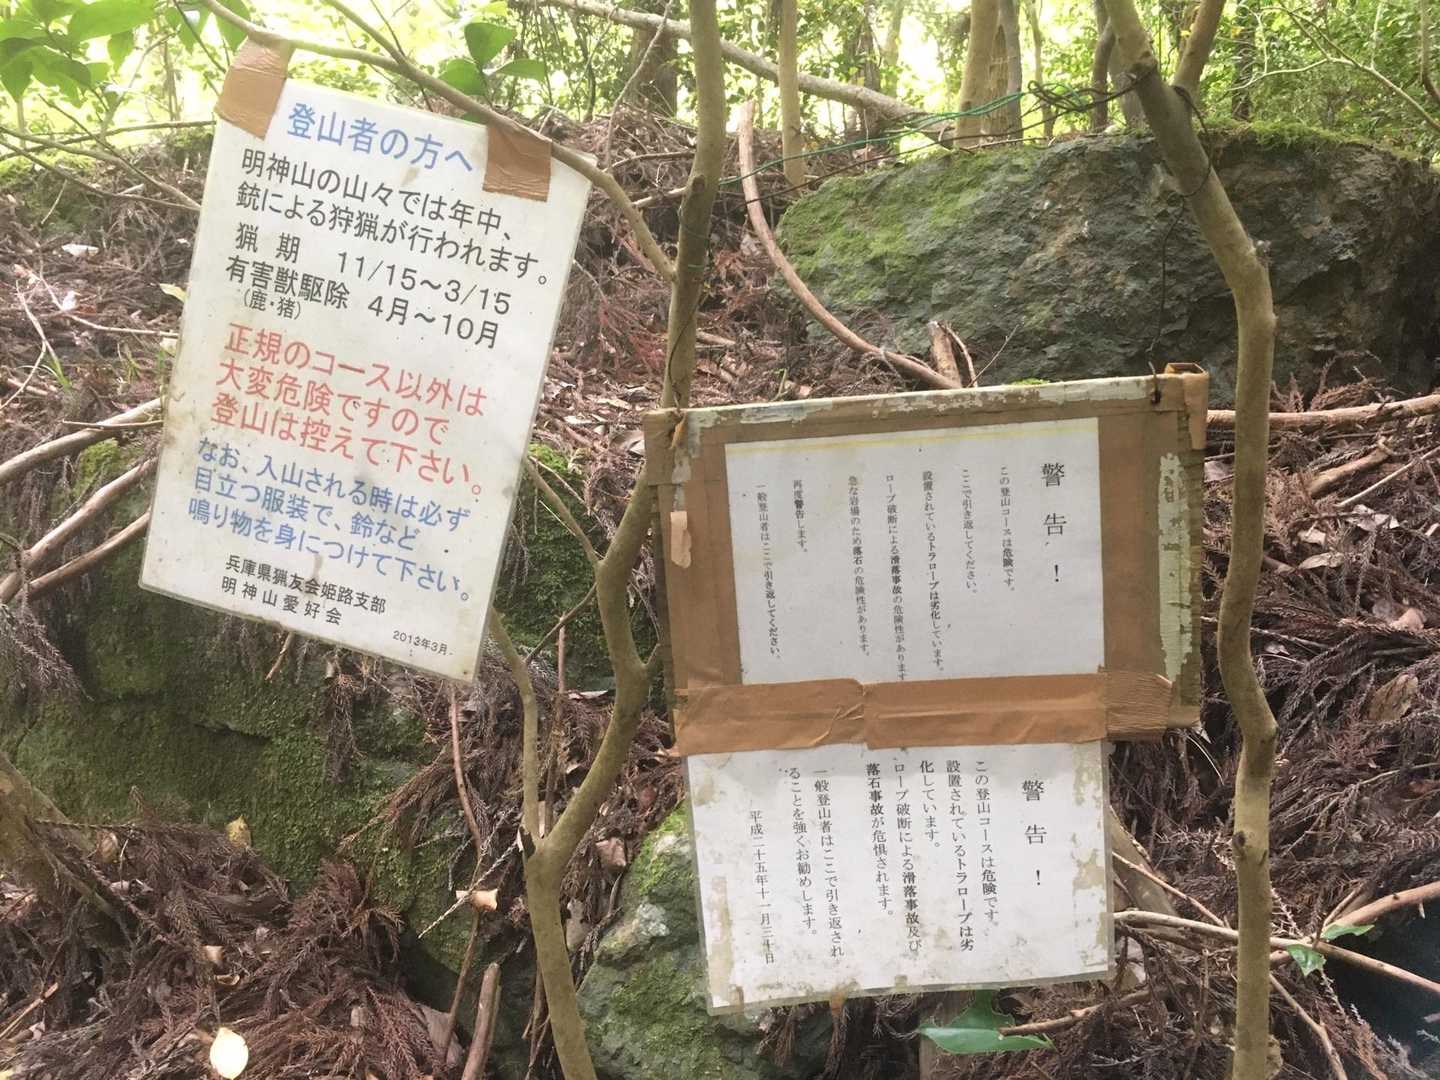 登山者の方へ
明神山の山々では年中、
銃による狩猟が行われます。
猟 期 11/15～3/15
有害獣駆除 4月～10月
(鹿・猪)
正規のコース以外は
大変危険ですので
登山は控えて下さい。
なお、入山される時は必ず
目立つ服装で、鈴など
鳴り物を身につけて下さい。
兵庫県猟友会姫路支部
明神山愛好会
2013年3月
警告！
この登山コースは危険です。
ここで引き返してください。
設置されているトラロープは劣化しています。
ロープ破断による滑落事故の危険性があります
急な岩場のため落石の危険性があります。
再度警告します。
一般登山者はここで引き返してください、
警告！
この登山コースは危険です。
設置されているトラロープは劣
化しています。
ロープ破断による滑落事故及び
落石事故が危惧されます。
一般登山者はここで引き返され
ることを強くお勧めします。
平成二十五年十一月三十日